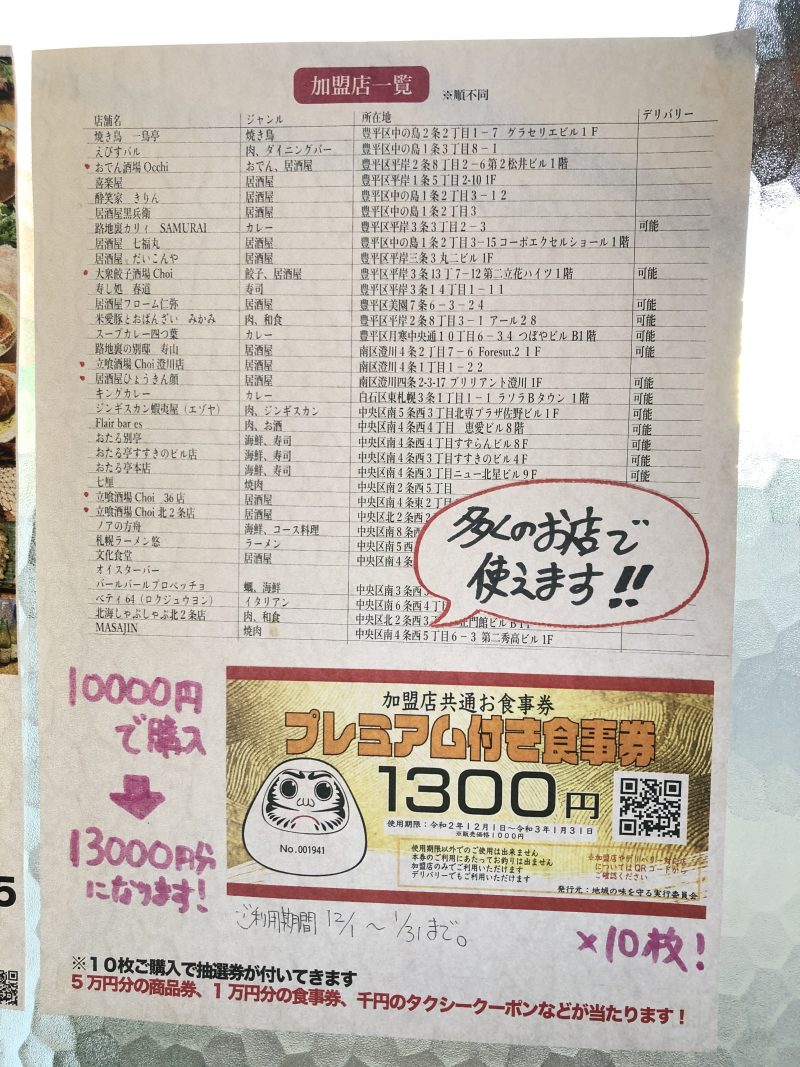 加盟店一覧 ※順不同
店舗名 ジャンル 所在地 デリバリー
焼き鳥 一鳥亭 焼き鳥 豊平区中の島2条2丁目1-7 グラセリエビル1F
えびすバル 肉、ダイニングバー 豊平区中の島1条3丁目8-1
おでん酒場 Occhi おでん、居酒屋 豊平区平岸2条8丁目2-6第2松井ビル1階
喜楽屋 居酒屋 豊平区平岸1条5丁目2-10 1F
酔笑家 きりん 居酒屋 豊平区中の島1条2丁目3-12
居酒屋黒兵衛 居酒屋 豊平区中の島1条2丁目3
路地裏カリィ SAMURAI カレー 豊平区平岸3条3丁目2-3 可能
居酒屋 七福丸 居酒屋 豊平区中の島1条2丁目3-15 コーポエクセルショール1階
居酒屋 だいこんや 居酒屋 豊平区平岸三条3 丸二ビル1F
大衆餃子酒場 Choi 餃子、居酒屋 豊平区平岸3条13丁7-12 第二立花ハイツ1階 可能
寿し処 春道 寿司 豊平区平岸3条14丁目1-11
居酒屋フローム仁弥 居酒屋 豊平区美園7条6-3-24 可能
米愛豚とおばんざい みかみ 肉、和食 豊平区平岸2条8丁目3-1 アール28 可能
スープカレー四つ葉 カレー 豊平区月寒中央通10丁目6-34 つぼやビル B1階 可能
路地裏の別邸 寿山 居酒屋 南区澄川4条2丁目7-6 Foresut.2 1F 可能
立喰酒場 Choi 澄川店 居酒屋 南区澄川4条1丁目1-22
居酒屋ひょうきん顔 居酒屋 南区澄川四条2-3-17 ブリリアント澄川 1F 可能
キングカレー カレー 白石区東札幌3条1丁目1-1 ラソラBタウン 1階 可能
ジンギスカン蝦夷屋（エゾヤ） 肉、ジンギスカン 中央区南5条西3丁目北専プラザ佐野ビル1F 可能
Flair bar es 肉、お酒 中央区南4条西4丁目 恵愛ビル8階 可能
おたる別亭 海鮮、寿司 中央区南4条西4丁目すずらんビル8F 可能
おたる亭すすきのビル店 海鮮、寿司 中央区南4条西3丁目すすきのビル4F 可能
おたる亭本店 海鮮、寿司 中央区南4条西3丁目ニュー北星ビル9F 可能
七厘 焼肉 中央区南2条西5丁目
立喰酒場 Choi 36店 居酒屋 中央区南4条東2丁
立喰酒場 Choi 北2条店 居酒屋 中央区北2条西
ノアの方舟 海鮮、コース料理 中央区南8条西
札幌ラーメン悠 ラーメン 中央区南5条西
文化食堂 居酒屋 中央区南4条
オイスターバー
バールバールプロペッチョ 蠣、海鮮 中央区南3条西
ベティ64（ロクジュウヨン） イタリアン 中央区南6条西4丁
北海しゃぶしゃぶ北2条店 肉、和食 中央区北2条西3丁
MASAJIN 焼肉 中央区南4条西5丁目6-3 第二秀高ビル 1F
多くのお店で
使えます!!
10000円
で購入
13000円分
になります!
加盟店共通お食事券
プレミアム付き食事券
1300円
使用期限：令和2年12月1日〜令和3年1月31日
※販売価格1000円
No.001941
使用期限以外でのご使用は出来ません
本券のご利用にあたってお釣りは出ません
加盟店のみでご利用いただけます
デリバリーでもご利用いただけます
※加盟店やデリバリー対応店
についてはQRコードから
ご確認ください
発行元：地域の味を守る実行委員会
ご利用期間 12/1 〜 1/31まで。
×10枚!
※10枚ご購入で抽選券が付いてきます
5万円分の商品券、1万円分の食事券、千円のタクシークーポンなどが当たります！